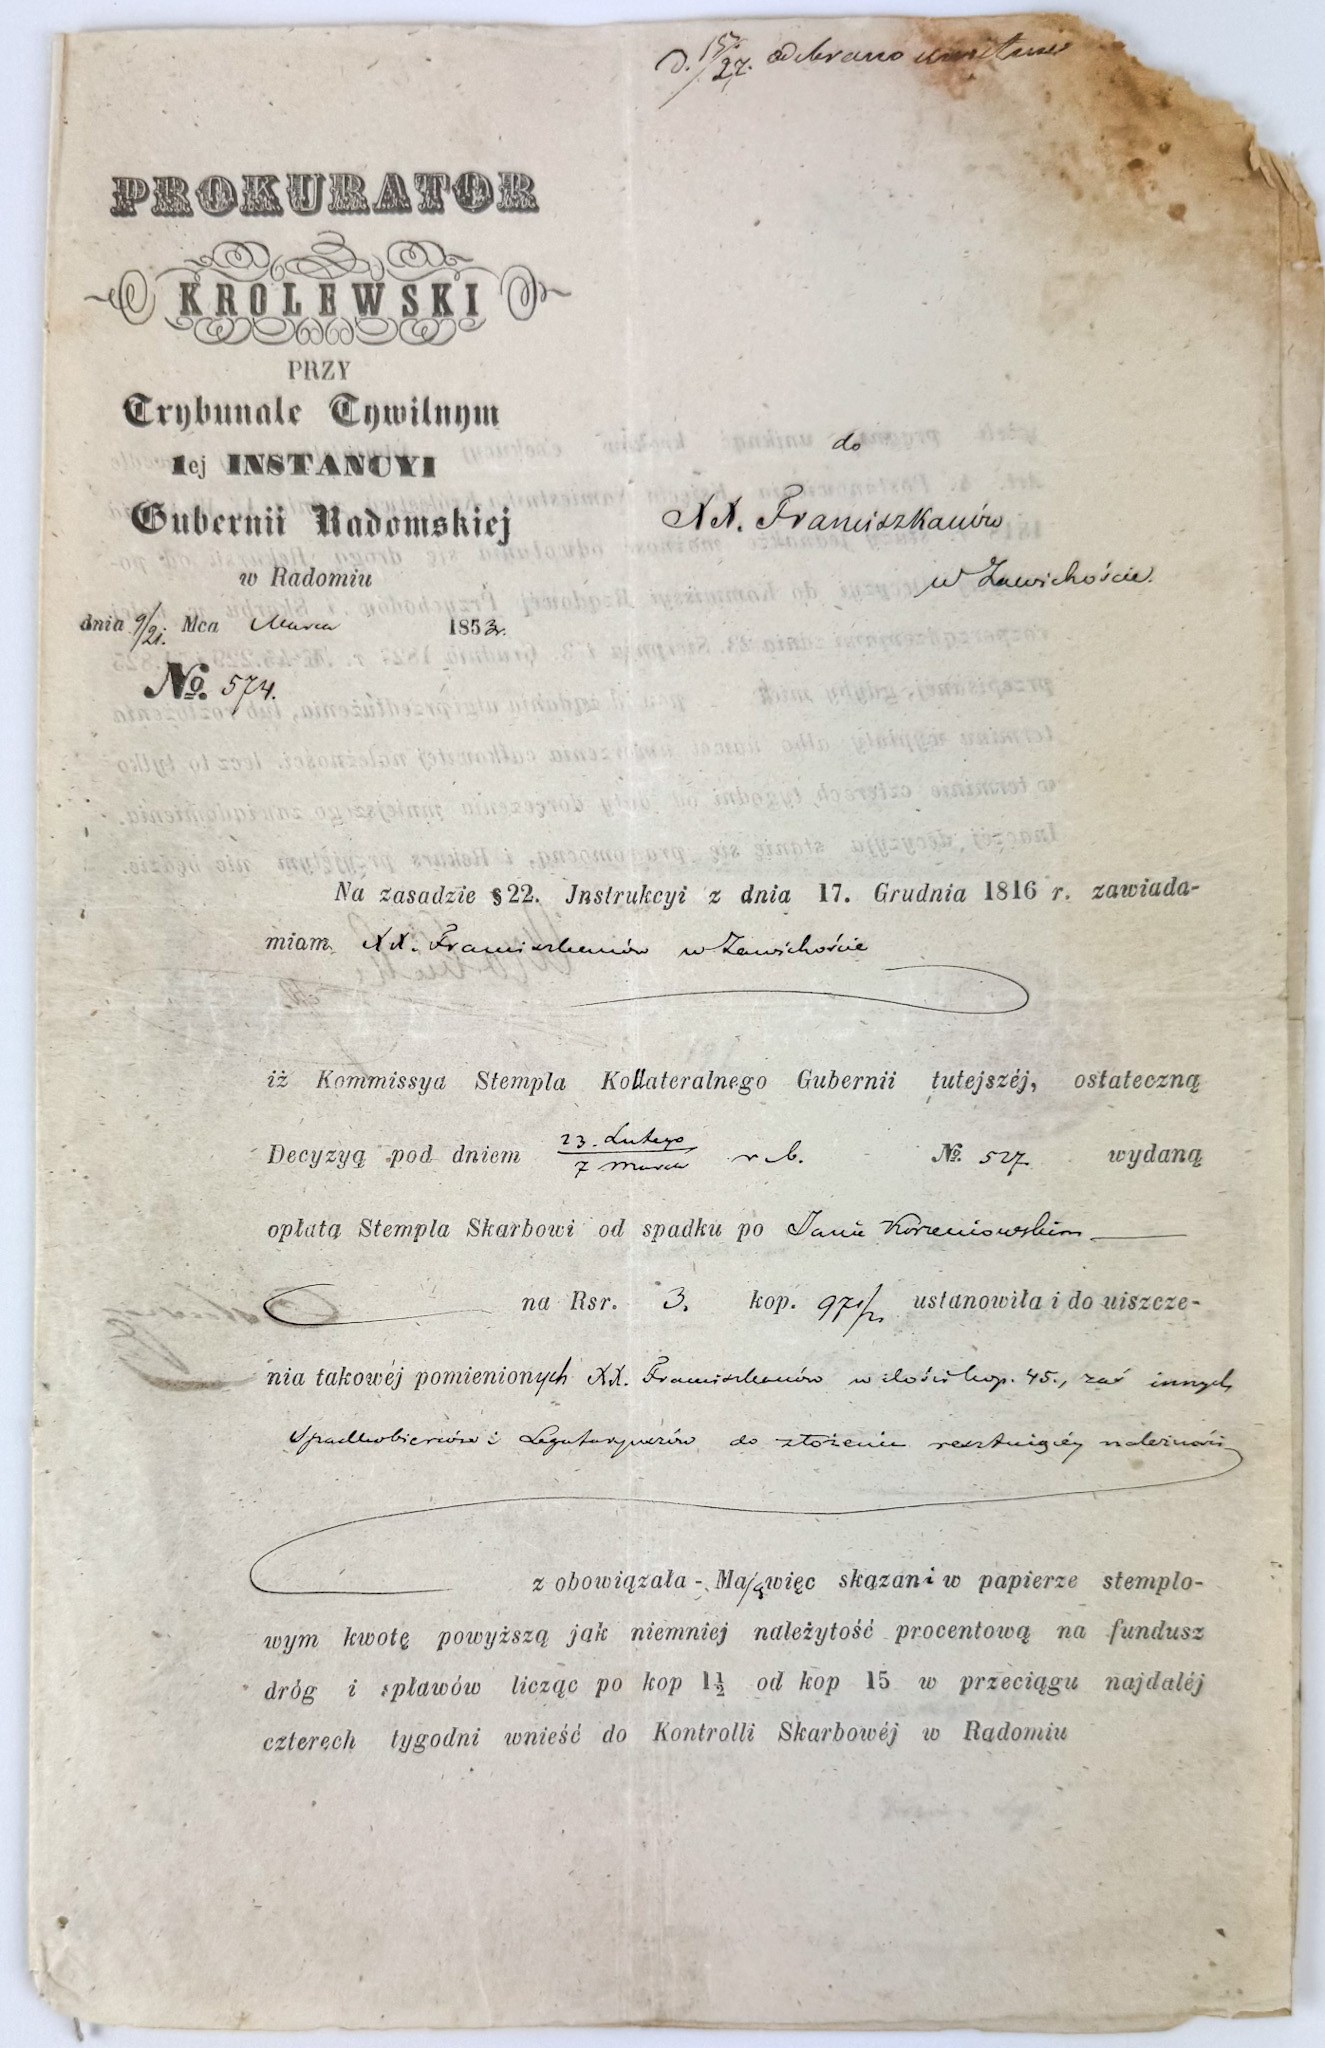 D. 15/27. odebrano
PROKURATOR
KROLEWSKI
PRZY
Trybunale Cywilnym
1ej INSTANCYI
Gubernii Radomskiej
w Radomiu
dnia 9/21. Mca Marca 1853 r.
No. 574.
do
XX. Franciszkanów
w Zawichoście.
Na zasadzie § 22. Instrukcyi z dnia 17. Grudnia 1816 r. zawiada-
miam XX. Franciszkanów w Zawichoście
iż Kommissya Stempla Kollateralnego Gubernii tutejszéj, ostateczną
Decyzyą pod dniem 23. Lutego/7 Marca r. b. No. 527 wydaną
opłatą Stempla Skarbowi od spadku po Janie Korzeniowskim
na Rsr. 3. kop. 97 1/2 ustanowiła i do uiszcze-
nia takowéj pomienionych XX. Franciszkanów w ilości kop. 45., zaś innych
Spadkobierców i Legataryuszów do złożenia resztuiącéy należności
z obowiązała - Mają więc skazani w papierze stemplo-
wym kwotę powyższą jak niemniej należytość procentową na fundusz
dróg i spławów licząc po kop 1½ od kop 15 w przeciągu najdaléj
czterech tygodni wnieść do Kontrolli Skarbowéj w Radomiu